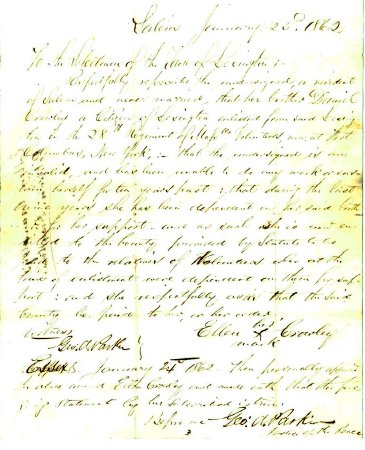 Salem January 22d 1862,
To the Selectmen of the Town of Lexington :-
Respectfully represents the undersigned, a resident
of Salem and never married, that her brother Daniel
Crowley a Citizen of Lexington enlisted from said Lexing-
ton in the 28th Regiment of Mass tts Volunteers now at Fort
Columbus, New York, :- that the undersigned is an
invalid, and has been unable to do any work or sus-
tain herself for ten years past : that during the last
years she has been dependent on her said broth
for her support - and as such she is now en-
to the bounty, provided by Statute to be
to the relatives of Volunteers who at the
time of enlistment were dependent on them for sup-
port : and she respectfully asks that the said
bounty be paid to her or her order.
Witness Ellen her X mark Crowley
Geo. A. Parkin
Essex ss January 24th 1862. Then personally appeared
the above named Ellen Crowley and made oath that the fore-
ing statement by her subscribed is true.
Before me Geo. A. Parkin
Justice of the Peace